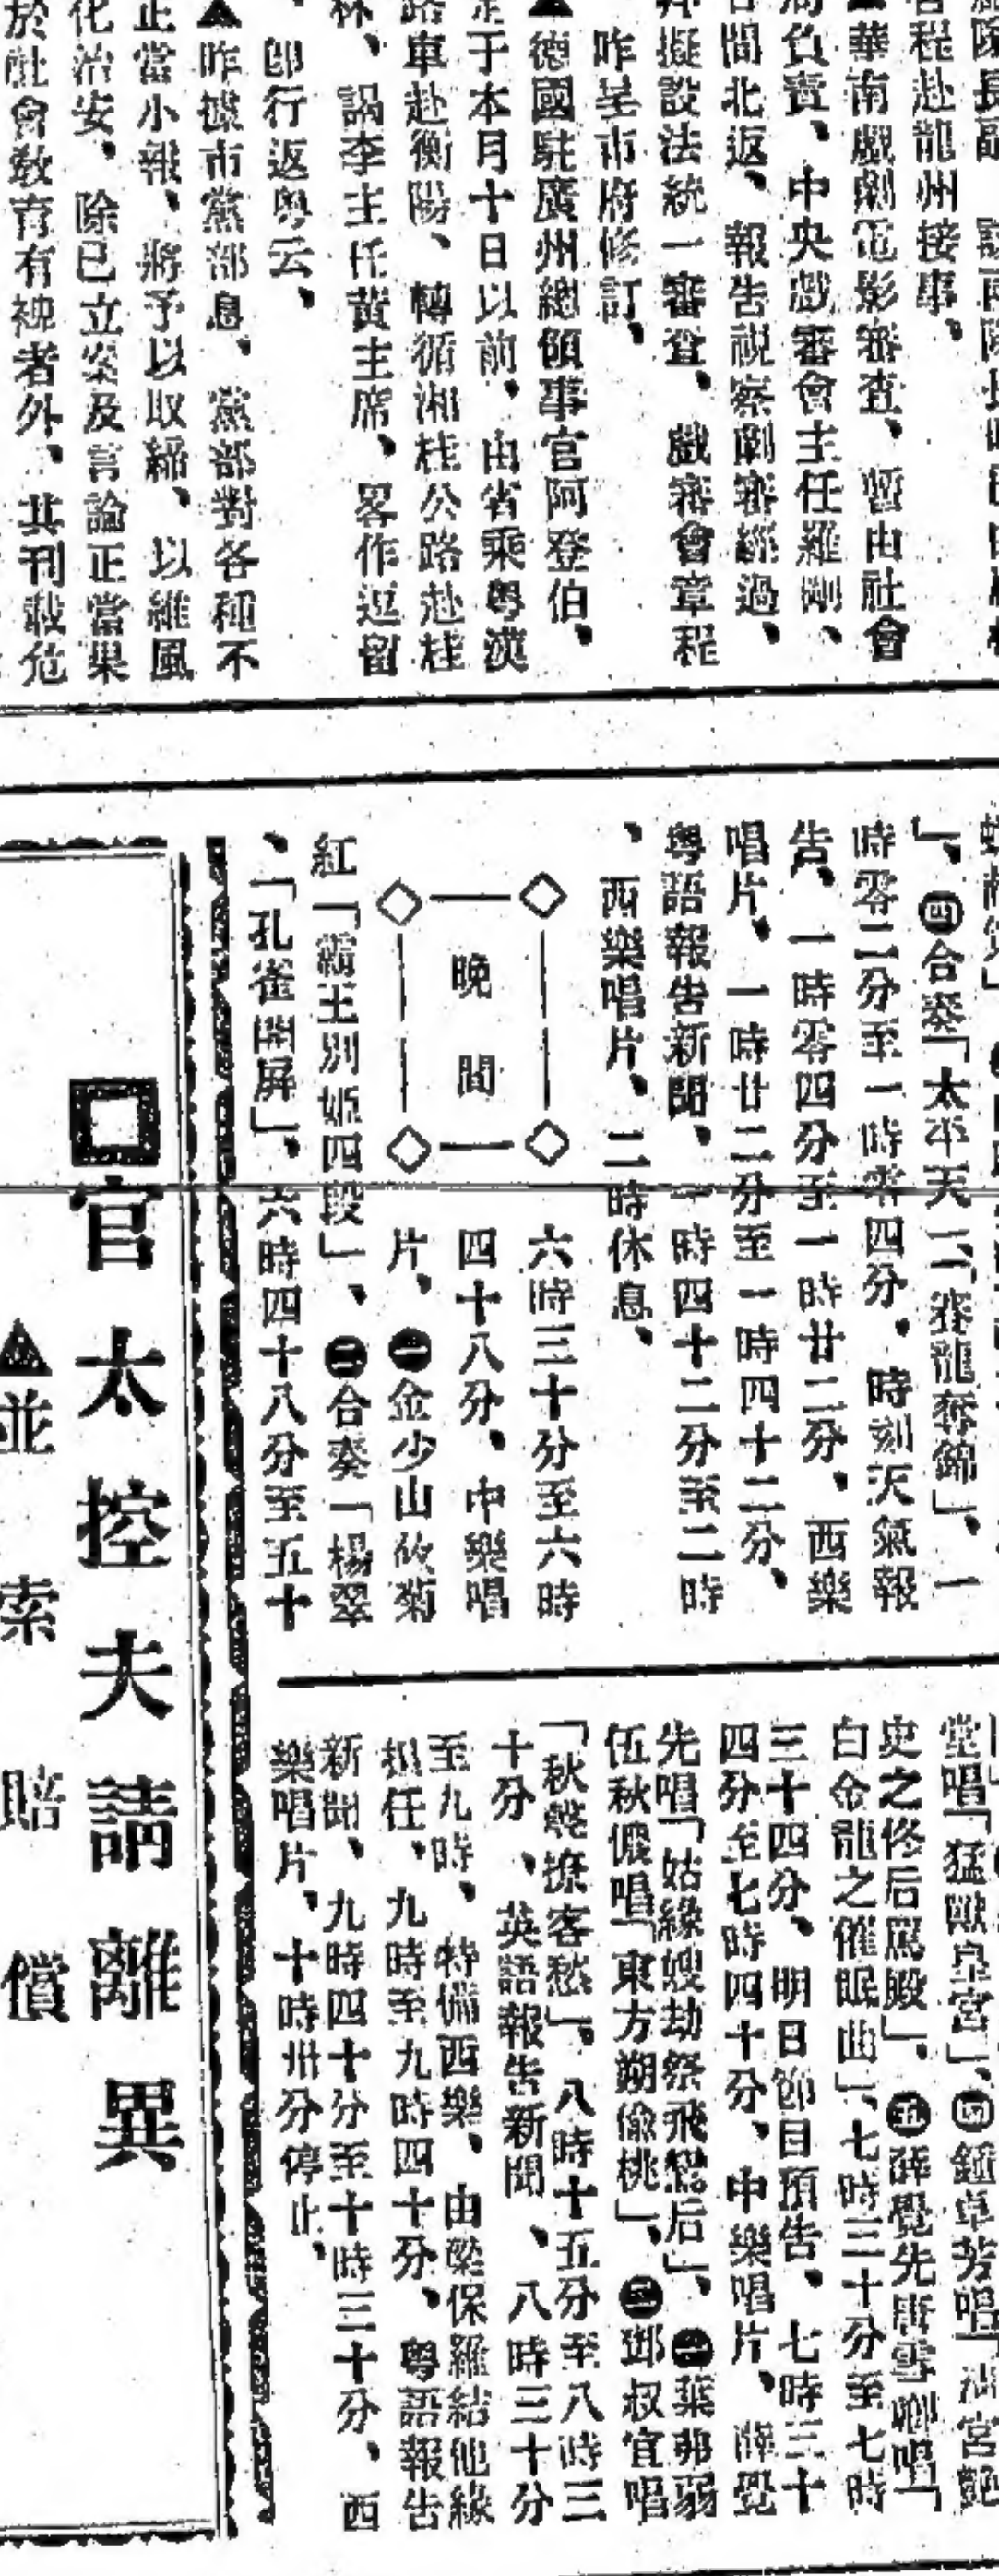 程赴龍州接事、
華南戲劇電影審查、暫由社會
負責、中央戲審會主任羅剛、
間北返、報告視察劇審經過、
擬設法統一審查、戲審會章程
昨呈市府修訂、
▲德國駐廣州總領事官阿登伯、
于本月十日以前、由省乘粵漢
路車赴衡陽、轉循湘桂公路赴桂
林、謁李主任黃主席、畧作逗留
、卽行返粵云、
▲昨據市黨部息、黨部對各種不
正當小報、將予以取締、以維風
化治安、除已立案及言論正當果
於社會教育有裨者外、其刊載危
」、㊃合奏「太平天」「賽龍奪錦」、一
時零二分至一時零四分、時刻天氣報
告、一時零四分至一時廿二分、西樂
唱片、一時廿二分至一時四十二分、
粵語報告新聞、一時四十二分至二時
、西樂唱片、二時休息、
晚間
六時三十分至六時
四十八分、中樂唱
片、㊀金少山、筱菊
紅「霸王別姬四段」、㊁合奏「楊翠
、「孔雀開屏」、六時四十八分至五十
堂唱「猛獸皇宮」、㊃鍾卓芳唱「宮艷
史之修后罵殿」、㊄薛覺先唐雪卿唱「
白金龍之催眠曲」、七時三十分至七時
三十四分、明日節目預告、七時三十
四分至七時四十分、中樂唱片、薛覺
先唱「姑緣嫂劫祭飛鸞后」、㊁葉弗弱
伍秋儂唱「東方朔偷桃」、㊂鄧叔宜唱
「秋聲撩客愁」、八時十五分至八時三
十分、英語報告新聞、八時三十分
至九時、特備西樂、由梁保羅結他綠
担任、九時至九時四十分、粵語報告
新聞、九時四十分至十時三十分、西
樂唱片、十時卅分停止、
官太控夫請離異
▲並索賠償